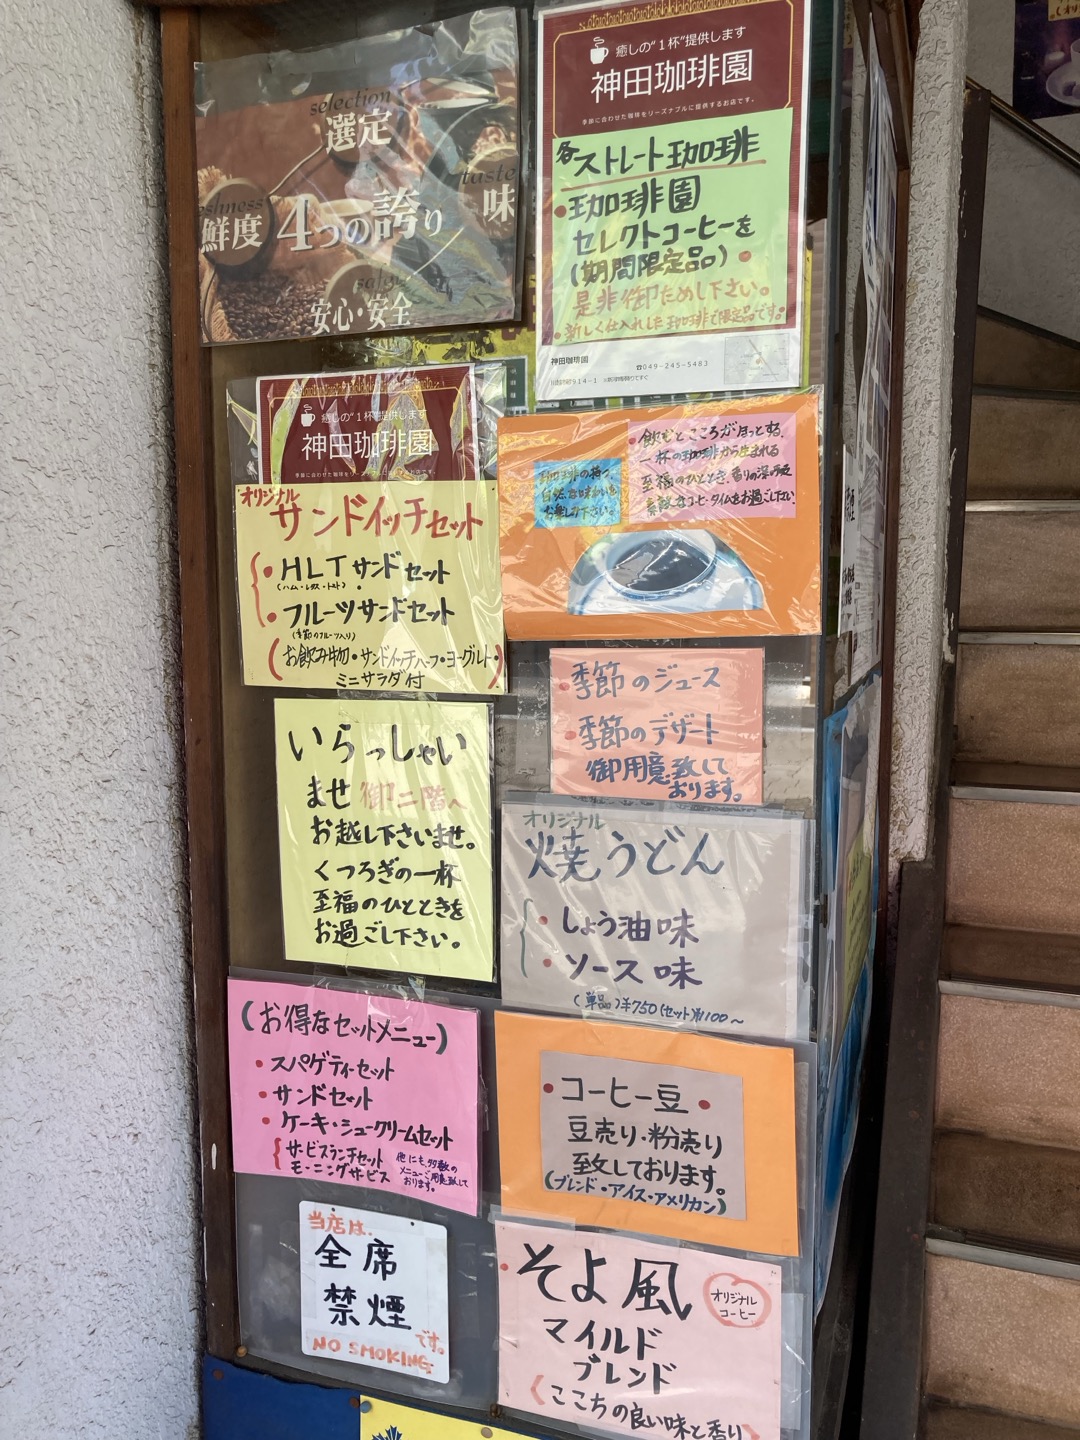 selection
選定
taste
味
鮮度
4つの誇り
安心・安全
癒しの“1杯”提供します
神田珈琲園
季節に合わせた珈琲をリーズナブルに提供するお店です。
各ストレート珈琲
・珈琲園
セレクトコーヒーを
(期間限定品)・
是非御ためし下さい。
・新しく仕入れした珈琲で限定品です。
神田珈琲園
☎049-245-5483
914-1
癒しの“1杯”提供します
神田珈琲園
季節に合わせた珈琲をリーズナブルに提供するお店です。
オリジナル
サンドイッチセット
・HLTサンドセット
(ハム・レタス・トマト)
・フルーツサンドセット
(季節のフルーツ入り)
(お飲み物・サンドイッチハーフ・ヨーグルト・
ミニサラダ付)
珈琲の持つ
自然な味わいを
お楽しみ下さい。
・飲むとこころがほっとする、
一杯の珈琲から生まれる
至福のひととき、香りの深い
素敵なコーヒータイムをお過ごし下さい
・季節のジュース
・季節のデザート
御用意致して
おります。
いらっしゃい
ませ 御二階へ
お越し下さいませ。
くつろぎの一杯
至福のひとときを
お過ごし下さい。
オリジナル
焼うどん
・しょう油味
・ソース味
(単品)¥750(セット)¥1100～
(お得なセットメニュー)
・スパゲティーセット
・サンドセット
・ケーキ・シュークリームセット
サービスランチセット
モーニングサービス
他にも多数の
メニューご用意致して
おります。
・コーヒー豆・
豆売り・粉売り
致しております。
(ブレンド・アイス・アメリカン)
当店は、
全席
禁煙
です。
NO SMOKING
・そよ風
オリジナル
コーヒー
マイルド
ブレンド
(ここちの良い味と香り